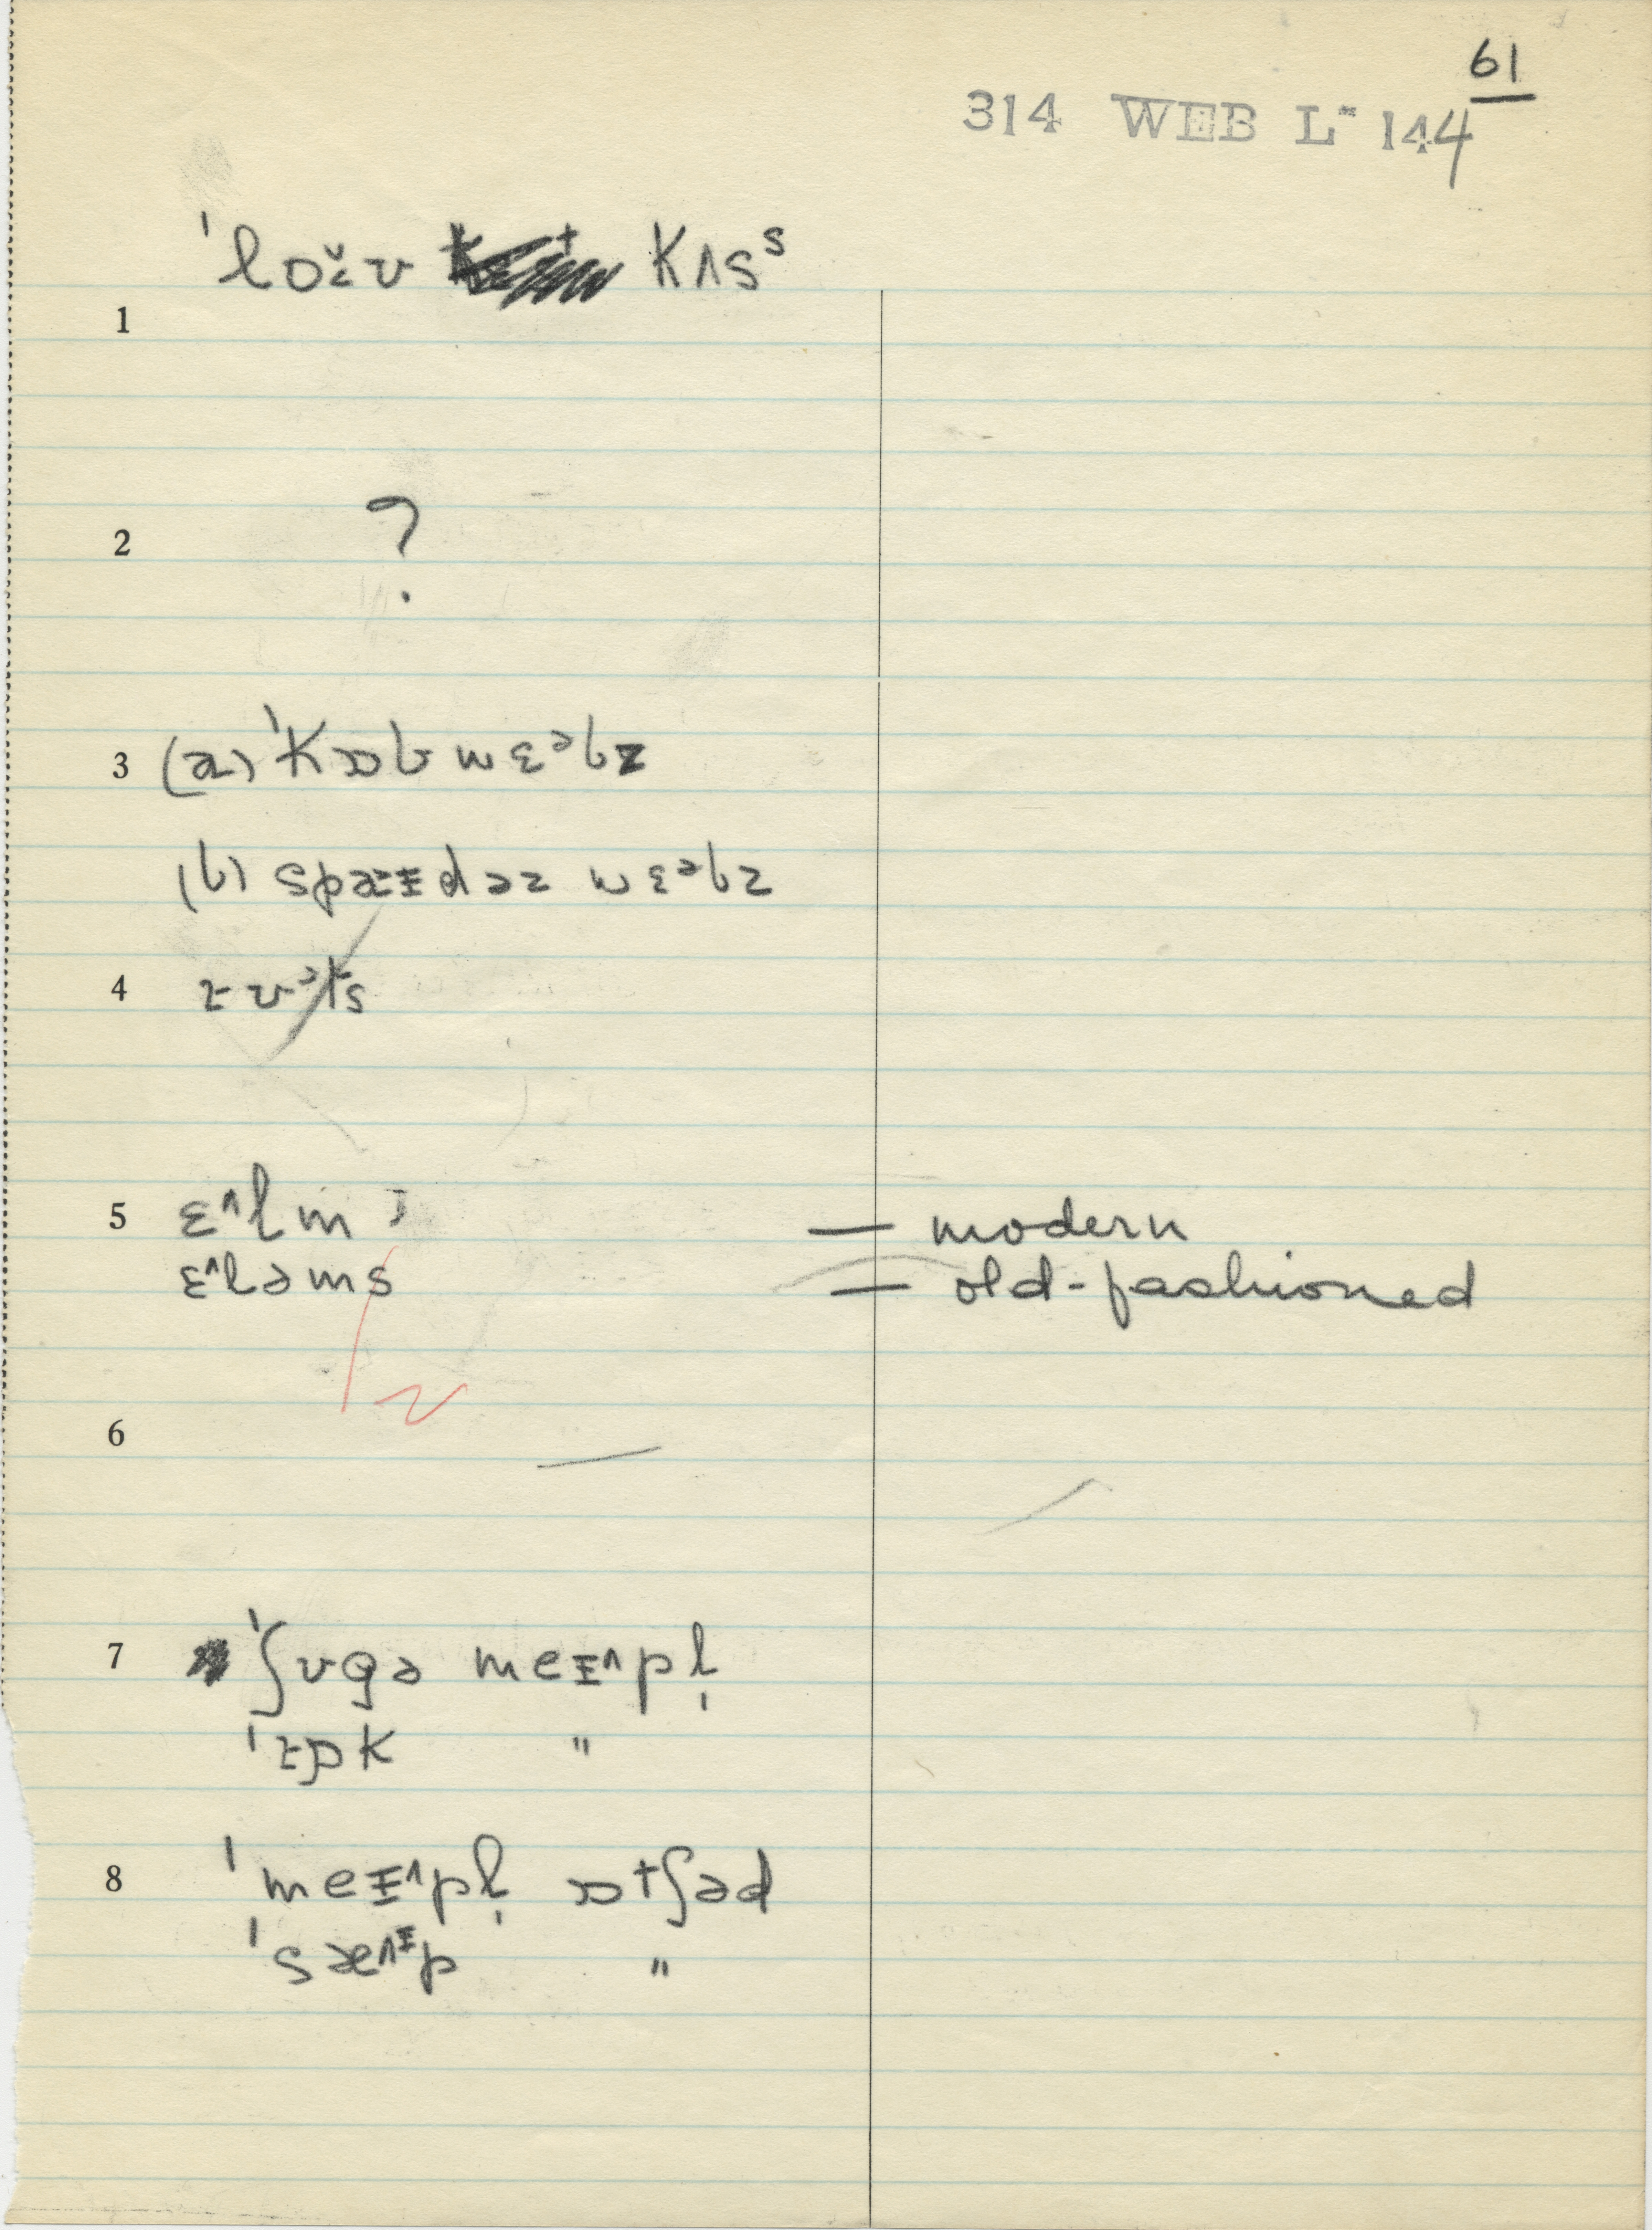 61
314 WEB L- 144
ˈlɒɪ̆ʊ kʌsˢ
1
2 ?
3 (a) ˈkɒb wɛᵊbz
(b) spæɪdəz wɛᵊbz
4 ɪʊᵊts
5 ɛ^lm — modern
ɛ^ləms — old-fashioned
6 —
7 ˈʃʊgə meɪ^pl̩
ˈɪɒk "
8 ˈmeɪ^pl̩ ɒtʃəd
ˈsæ^ᶦp "